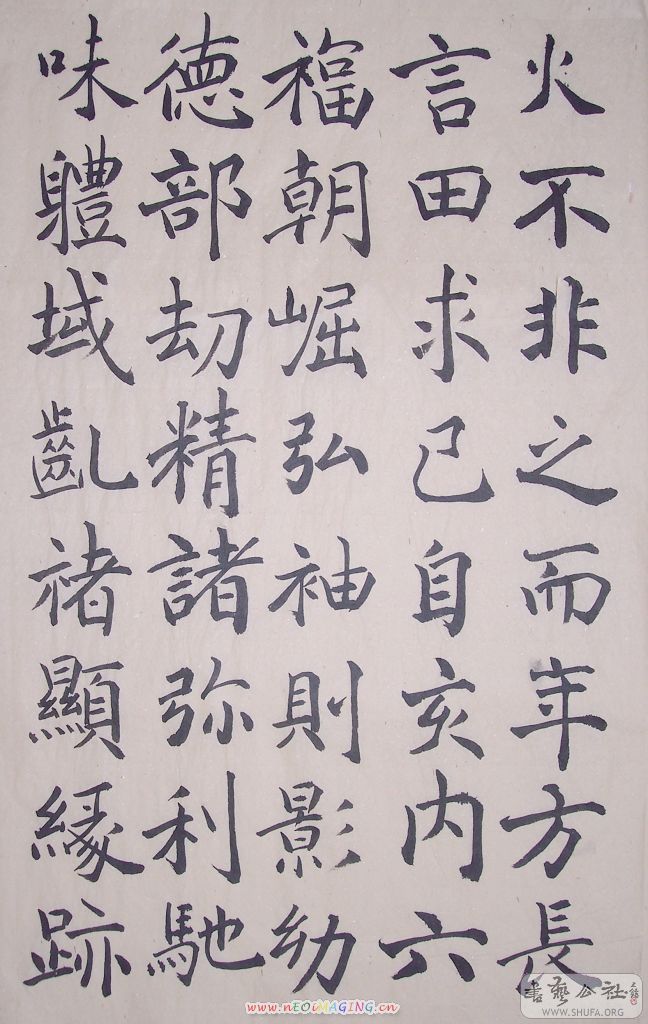 火不非之而年方長
言田求己自亥内六
福朝崛弘袖則影幼
德部劫精諸弥利馳
味軆域齓禇顯緣跡
書藝公社
WWW.SHUFA.ORG
www.nEOiMAGiNG.cn